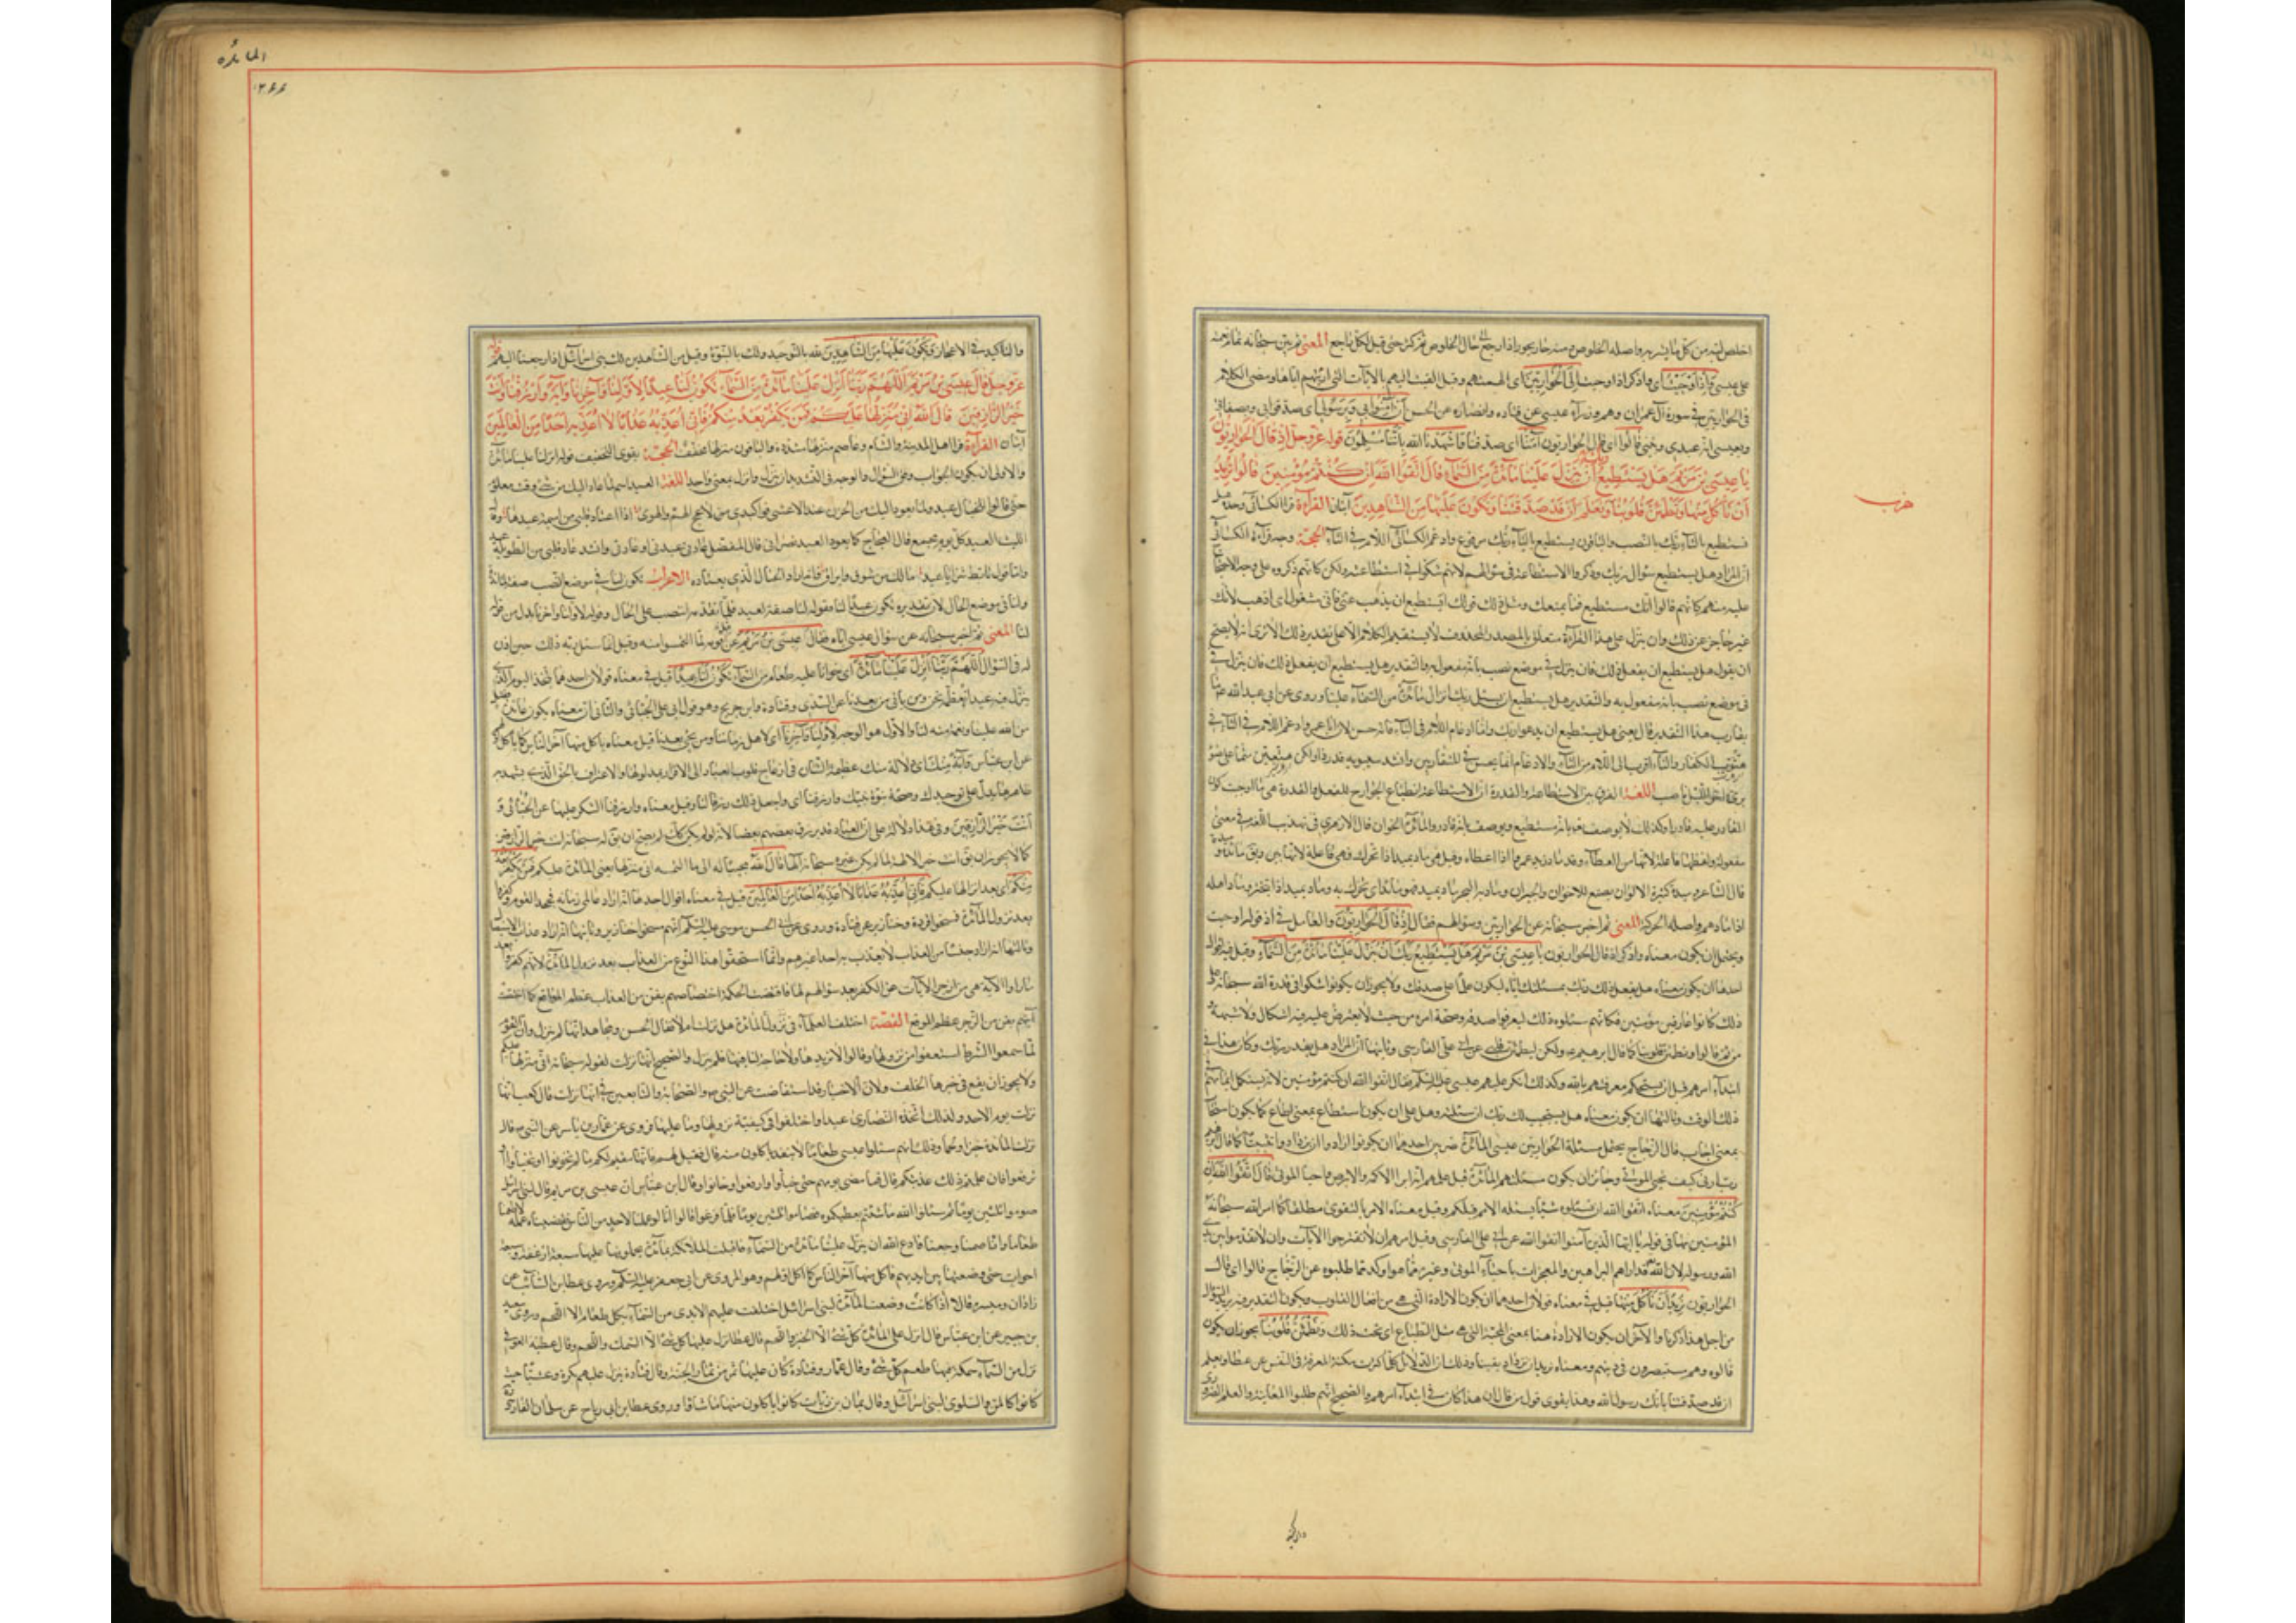 اخلص لبه من كل ما يشربه واصله الخلوص ومنه حار يحور اذا رجع الى حال الخلوص ثم كثر حتى قيل لكل راجع المعنى ثم بين سبحانه تمام نعمته
على عيسى فاذ اوحيت اى واذكر اذ اوحيت الى الحواريين اى الهمتهم وقيل القيت اليهم بالآيات التى اريتهم اياها ومضى الكلام
فى الحواريين فى سورة آل عمران وهم وزراء عيسى عن قتاده وانصاره عن الحسن ان آمنوا بى وبرسولى اى صدقوا بى وبصفاتى
وبعيسى انه عبدى ونبيى قالوا اى قال الحواريون آمنا اى صدقنا فاشهد يا الله باننا مسلمون قوله عز وجل اذ قال الحواريون
يا عيسى بن مريم هل يستطيع ربك ان ينزل علينا مائدة من السماء قال اتقوا الله ان كنتم مؤمنين قالوا نريد
ان نأكل منها وتطمئن قلوبنا ونعلم ان قد صدقتنا ونكون عليها من الشاهدين آيتان القراءة قرأ الكسائى وحده هل
تستطيع بالتاء ربك بالنصب والباقون يستطيع بالياء ربك مرفوع وادغم الكسائى اللام فى التاء الحجة وجه قراءة الكسائى
ان المراد هل يستطيع سؤال ربك وذكروا الاستطاعة فى سؤالهم لانهم شكوا فى استطاعته ولكن كانهم ذكروه على وجه الاحتجاج
عليه منهم كانهم قالوا انك مستطيع فما يمنعك ومثل ذلك قولك اتستطيع ان يذهب عنى فانى مشغول اى اذهب لانك
غير عاجز عن ذلك وان ينزل على هذا القراءة متعلق بالمصدر المحذوف لا يستقيم الكلام الا على تقدير ذلك الا ترى انه لا يصح
ان يقول هل يستطيع ان يفعل ذلك فان ينزل فى موضع نصب بانه مفعول به والتقدير هل يستطيع ان يفعل ذلك فان ينزل فى
فى موضع نصب بانه مفعول به والتقدير هل يستطيع ان يسئل ربك انزال مائدة من السماء علينا وروى عن ابى عبد الله ما
يقارب هذا التقدير قال يعنى هل يستطيع ان يدعو ربك واما ادغام اللام فى التاء فانه حسن لان ابا عمرو ادغم اللام فى الثاء فى
هل ثوب الكفار والتاء اقرب الى اللام من الثاء والادغام انما يحسن فى المتقاربين وانشد سيبويه فذر ذا ولكن هتعين متيما على ضوء
برق آخر الليل ناصب اللغة الفرق بين الاستطاعة والقدرة ان الاستطاعة انطباع الجوارح للفعل والقدرة هى ما اوجبت كون
القادر عليه قادرا وكذلك لا يوصف تعالى بانه مستطيع ويوصف بانه قادر والمائدة الخوان قال الازهرى فى تهذيب اللغة فى معنى
مفعولة ولفظها فاعلة لانها من العطاء وقد ماد زيد عمروا اذا اعطاه وقيل هى من ماد يميد اذا تحرك فهى فاعلة
قال الشاعر وميدة كثيرة الالوان يصنع للاخوان والجيران وماد به البحر ماد يميد فهو مائد اى تحرك به وماد يميد اذا تبختر وماد اهله
اذا مادهم واصله الحركة المعنى ثم اخبر سبحانه عن الحواريين وسؤالهم فقال اذ قال الحواريون والعامل فى اذ قوله اوحيت
ويحتمل ان يكون معناه واذكر اذ قال الحواريون يا عيسى بن مريم هل يستطيع ربك ان ينزل علينا مائدة من السماء وقيل فيه اقوال
احدها ان يكون معناه هل يفعل ذلك ربك بمسئلتك اياه ليكون علما على صدقك ولا يجوز ان يكونوا شكوا فى قدرة الله سبحانه على
ذلك كانوا عارفين مؤمنين فكانهم سئلوه ذلك ليعرفوا صدقه وصحة امره من حيث لا يعترض عليه فيه اشكال ولا شبهة
من ثم قالوا وتطمئن قلوبنا كما قال ابرهيم ولكن ليطمئن قلبى عن ابى على الفارسى وثانيها ان المراد هل يقدر ربك وكان هذا فى
ابتداء امرهم قبل ان يستحكم معرفتهم بالله وكذلك انكر عليهم عيسى عليه السلم فقال اتقوا الله ان كنتم مؤمنين لانه لم يستكمل ايمانهم فى
ذلك الوقت وثالثها ان يكون معناه هل يستجيب لك ربك ان سئلته وهل على ان يكون استطاع بمعنى اطاع كما يكون استجاب
بمعنى اجاب قال الزجاج يحتمل مسئلة الحواريين عيسى المائدة ضربين احدهما ان يكونوا ارادوا ان يزدادوا تثبيتا كما قال ابرهيم
رب ارنى كيف تحيى الموتى وجائز ان يكون مسئلتهم المائدة قبل علمهم انه ابرأ الاكمه والابرص واحيا الموتى قال اتقوا الله ان
كنتم مؤمنين معناه اتقوا الله ان تسئلوه شيئا لم يسئله الامم قبلكم وقيل معناه الامر بالتقوى مطلقا كما امر الله سبحانه
المؤمنين بها فى قوله يا ايها الذين آمنوا اتقوا الله عن ابى على الفارسى وقيل امرهم ان لا تقترحوا الآيات وان لا تقدموا بين يدى
الله ورسوله لان الله قد اراهم البراهين والمعجزات باحياء الموتى وغيره مما هو اوكد مما طلبوه عن الزجاج قالوا اى قال
الحواريون نريد ان نأكل منها قيل فى معناه قولان احدهما ان يكون الارادة التى هى من افعال القلوب ويكون التقدير فيه نريد السؤال
من اجل هذا ذكرنا والآخر ان يكون الارادة هنا بمعنى المحبة التى هى ميل الطباع اى نحب ذلك وتطمئن قلوبنا يجوز ان يكون
قالوه وهم مستبصرون فى دينهم ومعناه نريد ان نزداد يقينا وذلك ان الدلائل كلما كثرت مكنت المعرفة فى النفس عن عطا ونعلم
ان قد صدقتنا بانك رسول الله وهذا يقوى قول من قال ان هذا كان فى ابتداء امرهم والصحيح انهم طلبوا المعاينة والعلم الضرورى
حزب
المائده
۲۶۶
والتاكيد فى الاعجاز ونكون عليها من الشاهدين لله بالتوحيد ولك بالنبوة وقيل من الشاهدين لك عند بنى اسرائيل اذا رجعنا اليهم قوله
عز وجل قال عيسى بن مريم اللهم ربنا انزل علينا مائدة من السماء تكون لنا عيدا لاولنا وآخرنا وآية منك وارزقنا وانت
خير الرازقين قال الله انى منزلها عليكم فمن يكفر بعد منكم فانى اعذبه عذابا لا اعذبه احدا من العالمين
آيتان القراءة قرأ اهل المدينة والشام وعاصم منزلها مشددة والباقون منزلها مخففة الحجة يقوى التخفيف قوله انزل علينا مائدة
والاولى ان يكون الجواب وفق السؤال والوجه فى التشديد ان نزل وانزل بمعنى واحد اللغة العيد اسم لما عاد اليك من شئ فى وقت معلوم
حتى قالوا للخيال عيد ولما يعود اليك من الحزن عيد قال الاعشى فواكبدى من لاعج الهم والهوى اذا اعتاد قلبى من اميمة عيدها وقال
الليث العيد كل يوم مجمع قال العجاج كما يعود العيد نصرانى قال المفضل عادنى عيدى اى عادتى وانشد عاد قلبى من الطويلة عيد
واما قول تابط شرا يا عيد مالك من شوق وايراق فانه اراد الخيال الذى يعتاده الاعراب تكون لنا فى موضع نصب صفة لمائدة
ولنا فى موضع الحال لان تقديره تكون عيدا لنا فقوله لنا صفة لعيد فلما تقدمه انتصب على الحال وقوله لاولنا وآخرنا بدل من قوله
لنا المعنى ثم اخبر سبحانه عن سؤال عيسى اياه فقال قال عيسى بن مريم عن قومه لما التمسوا منه وقيل انما سئل ربه ذلك حين اذن
له فى السؤال اللهم ربنا انزل علينا مائدة اى خوانا عليه طعام من السماء تكون لنا عيدا قيل فى معناه قولان احدهما نتخذ اليوم الذى
ينزل فيه عيدا نعظمه نحن ومن ياتى من بعدنا عن السدى وقتادة وابن جريح وهو قول ابى على الجبائى والثانى ان معناه يكون عائدة فضل
من الله علينا ونعمة منه لنا والاول هو الوجه لاولنا وآخرنا اى لاهل زماننا ومن يجئ بعدنا وقيل معناه يأكل منها آخر الناس كما يأكل اولهم
عن ابن عباس وآية منك اى دلالة منك عظيمة الشان فى ازعاج قلوب العباد الى الاقرار بمدلولها والاعتراف بالحق الذى يشهد به
ظاهرها يدل على توحيدك وصحة نبوة نبيك وارزقنا اى واجعل ذلك رزقا لنا وقيل معناه وارزقنا الشكر عليها عن الجبائى و
انت خير الرازقين وفى هذا دلالة على ان العباد قد يرزق بعضهم بعضا لانه لو لم يكن كذلك لم يصح ان يقال له سبحانه انت خير الرازقين
كما لا يجوز ان يقال انت خير الالهة لما لم يكن غيره سبحانه الها قال الله مجيبا له الى ما التمسه انى منزلها يعنى المائدة عليكم فمن يكفر بعد
منكم اى بعد انزالها عليكم فانى اعذبه عذابا لا اعذبه احدا من العالمين قيل فى معناه اقوال احدها انه اراد عالمى زمانه فجحد القوم وكفروا
بعد نزول المائدة فمسخوا قردة وخنازير عن قتادة وروى عن ابى الحسن موسى عليه السلم انهم مسخوا خنازير وثانيها انه اراد عذاب الاستيصال
وثالثها انه اراد جنسا من العذاب لا يعذب به احدا غيرهم وانما استحقوا هذا النوع من العذاب بعد نزول المائدة لانهم كفروا بعد
ما راوا الآية هى من ازجر الآيات عن الكفر بعد سؤالهم لها فاقتضت الحكمة اختصاصهم بفن من العذاب عظيم الموقع كما اختصت
آيتهم بفن من الزجر عظيم الموقع القصة اختلف العلماء فى نزول المائدة هل نزلت ام لا فقال الحسن ومجاهد انها لم تنزل وان القوم
لما سمعوا الشرط استعفوا من نزولها وقالوا لا نريدها ولا حاجة لنا فيها فلم ينزل والصحيح انها نزلت لقوله سبحانه انى منزلها عليكم
ولا يجوز ان يقع فى خبره الخلف ولان الاخبار قد استفاضت عن النبى ص والصحابة والتابعين فى انها نزلت قال كعب انها
نزلت يوم الاحد ولذلك اتخذه النصارى عيدا واختلفوا فى كيفية نزولها وما عليها فروى عن عمار بن ياسر عن النبى ص قال
نزلت المائدة خبزا ولحما وذلك انهم سئلوا عيسى طعاما لا ينفد يأكلون منه قال فقيل لهم فانها مقيمة لكم ما لم تخونوا او تخبأوا او
ترفعوا فان فعلتم ذلك عذبتكم قال فما مضى يومهم حتى خبأوا ورفعوا وخانوا وقال ابن عباس ان عيسى بن مريم قال لبنى اسرائيل
صوموا ثلثين يوما ثم سئلوا الله ما شئتم يعطيكموه فصاموا ثلثين يوما فلما فرغوا قالوا انا لو عملنا لاحد من الناس فقضينا عمله لاطعمنا
طعاما وانا صمنا وجعنا فادع الله ان ينزل علينا مائدة من السماء فاقبلت الملائكة بمائدة يحملونها عليها سبعة ارغفة وسبعة
احوات حتى وضعتها بين ايديهم فاكل منها آخر الناس كما اكل اولهم وهو المروى عن ابى جعفر عليه السلم وروى عطا بن السائب عن
زاذان وميسرة قالا اذا كانت وضعت المائدة لبنى اسرائيل اختلفت عليهم الايدى من السماء بكل طعام الا اللحم وروى سعيد
بن جبير عن ابن عباس قال انزل على المائدة كل شئ الا الخبز واللحم قال عطا نزل عليها كل شئ الا السمك واللحم وقال عطية العوفى
نزل من السماء سمكة فيها طعم كل شئ وقال عمار وقتادة كان عليها ثمر من ثمار الجنة وقال قتادة ينزل عليهم بكرة وعشيا حيث
كانوا كالمن والسلوى لبنى اسرائيل وقال يمان بن رئاب كانوا يأكلون منها ما شاؤا وروى عطا بن ابى رباح عن سلمان الفارسى